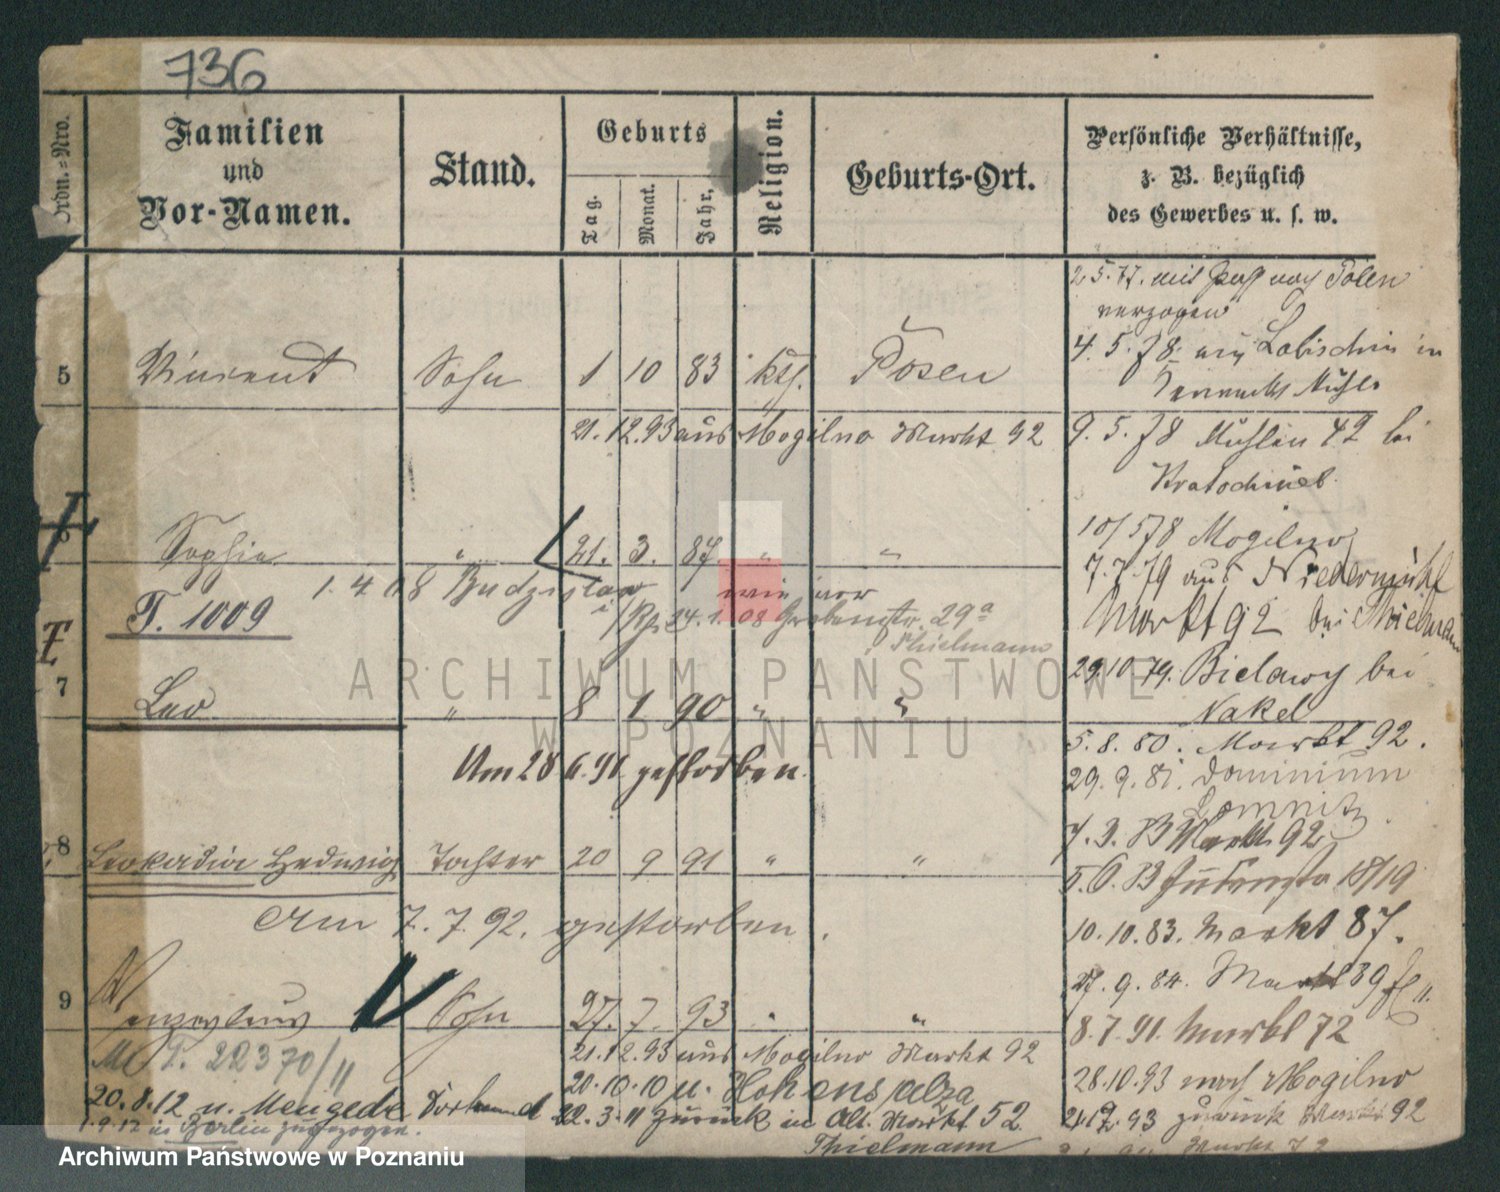 736
Ordn.-Nro.
Familien
und
Vor-Namen.
Stand.
Geburts
Tag.
Monat.
Jahr.
Religion.
Geburts-Ort.
Persönliche Verhältnisse,
z. B. bezüglich
des Gewerbes u. s. w.
2.5.77. mit Pass nach Polen
verzogen
5 Vincent Sohn 1 10 83 kth. Posen
4. 5. 78 Labischin in
21.12.93 aus Mogilno Markt 92
9. 5. 78 Mühlen 42 bei
6 Sophie " 21. 3. 87 " "
10/5 78 Mogilno
1. 4 08 Budzislaw wie vor
T. 1009
24.1.08 Grabenstr. 29a
Thielmann
7.7.79 aus Niedermühl
Markt 92 bei Thielmann
7 Leo " 8 1 90 " "
29.10.79. Bielawy bei
Nakel
Am 28 6.91. gestorben.
5.8.80. Markt 92.
29.9.81. Dominium
Lomnitz.
8 Leokadia Hedwig Tochter 20 9 91 " "
7.3.83 Markt 92
5.6.83 18/19
Am 7.7.92. gestorben.
10.10.83. Markt 87.
27.9.84. Markt 39
9 Wenzeslaus Sohn 27. 7. 93 " "
8.7.91. Markt 72
T. 22370/11
21.12.93 aus Mogilno Markt 92
28.10.93 nach Mogilno
20.10.10 u. Hohensalza
20.8.12 u. Mengede Dortmund
22.3.11 zurück in Alt. Markt 52
Thielmann
21.12.93 zurück Markt 92
1.9.12 in Berlin zugezogen.
Markt 72
ARCHIWUM PAŃSTWOWE
W POZNANIU
Archiwum Państwowe w Poznaniu